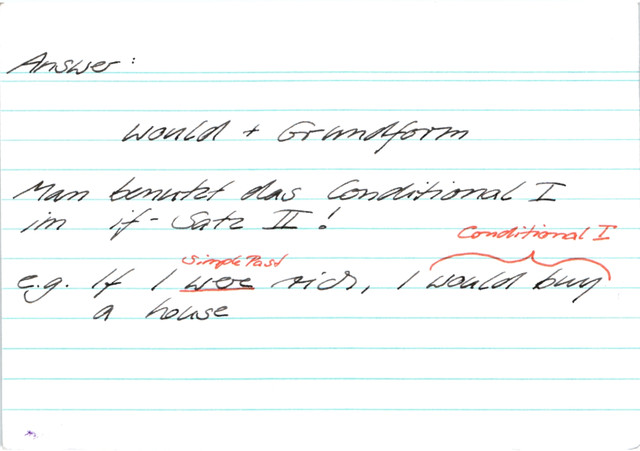 Answer:
would + Grundform
Man benutzt das Conditional I
im if-Satz II!
Conditional I
Simple Past
e.g. If I were rich, I would buy
a house